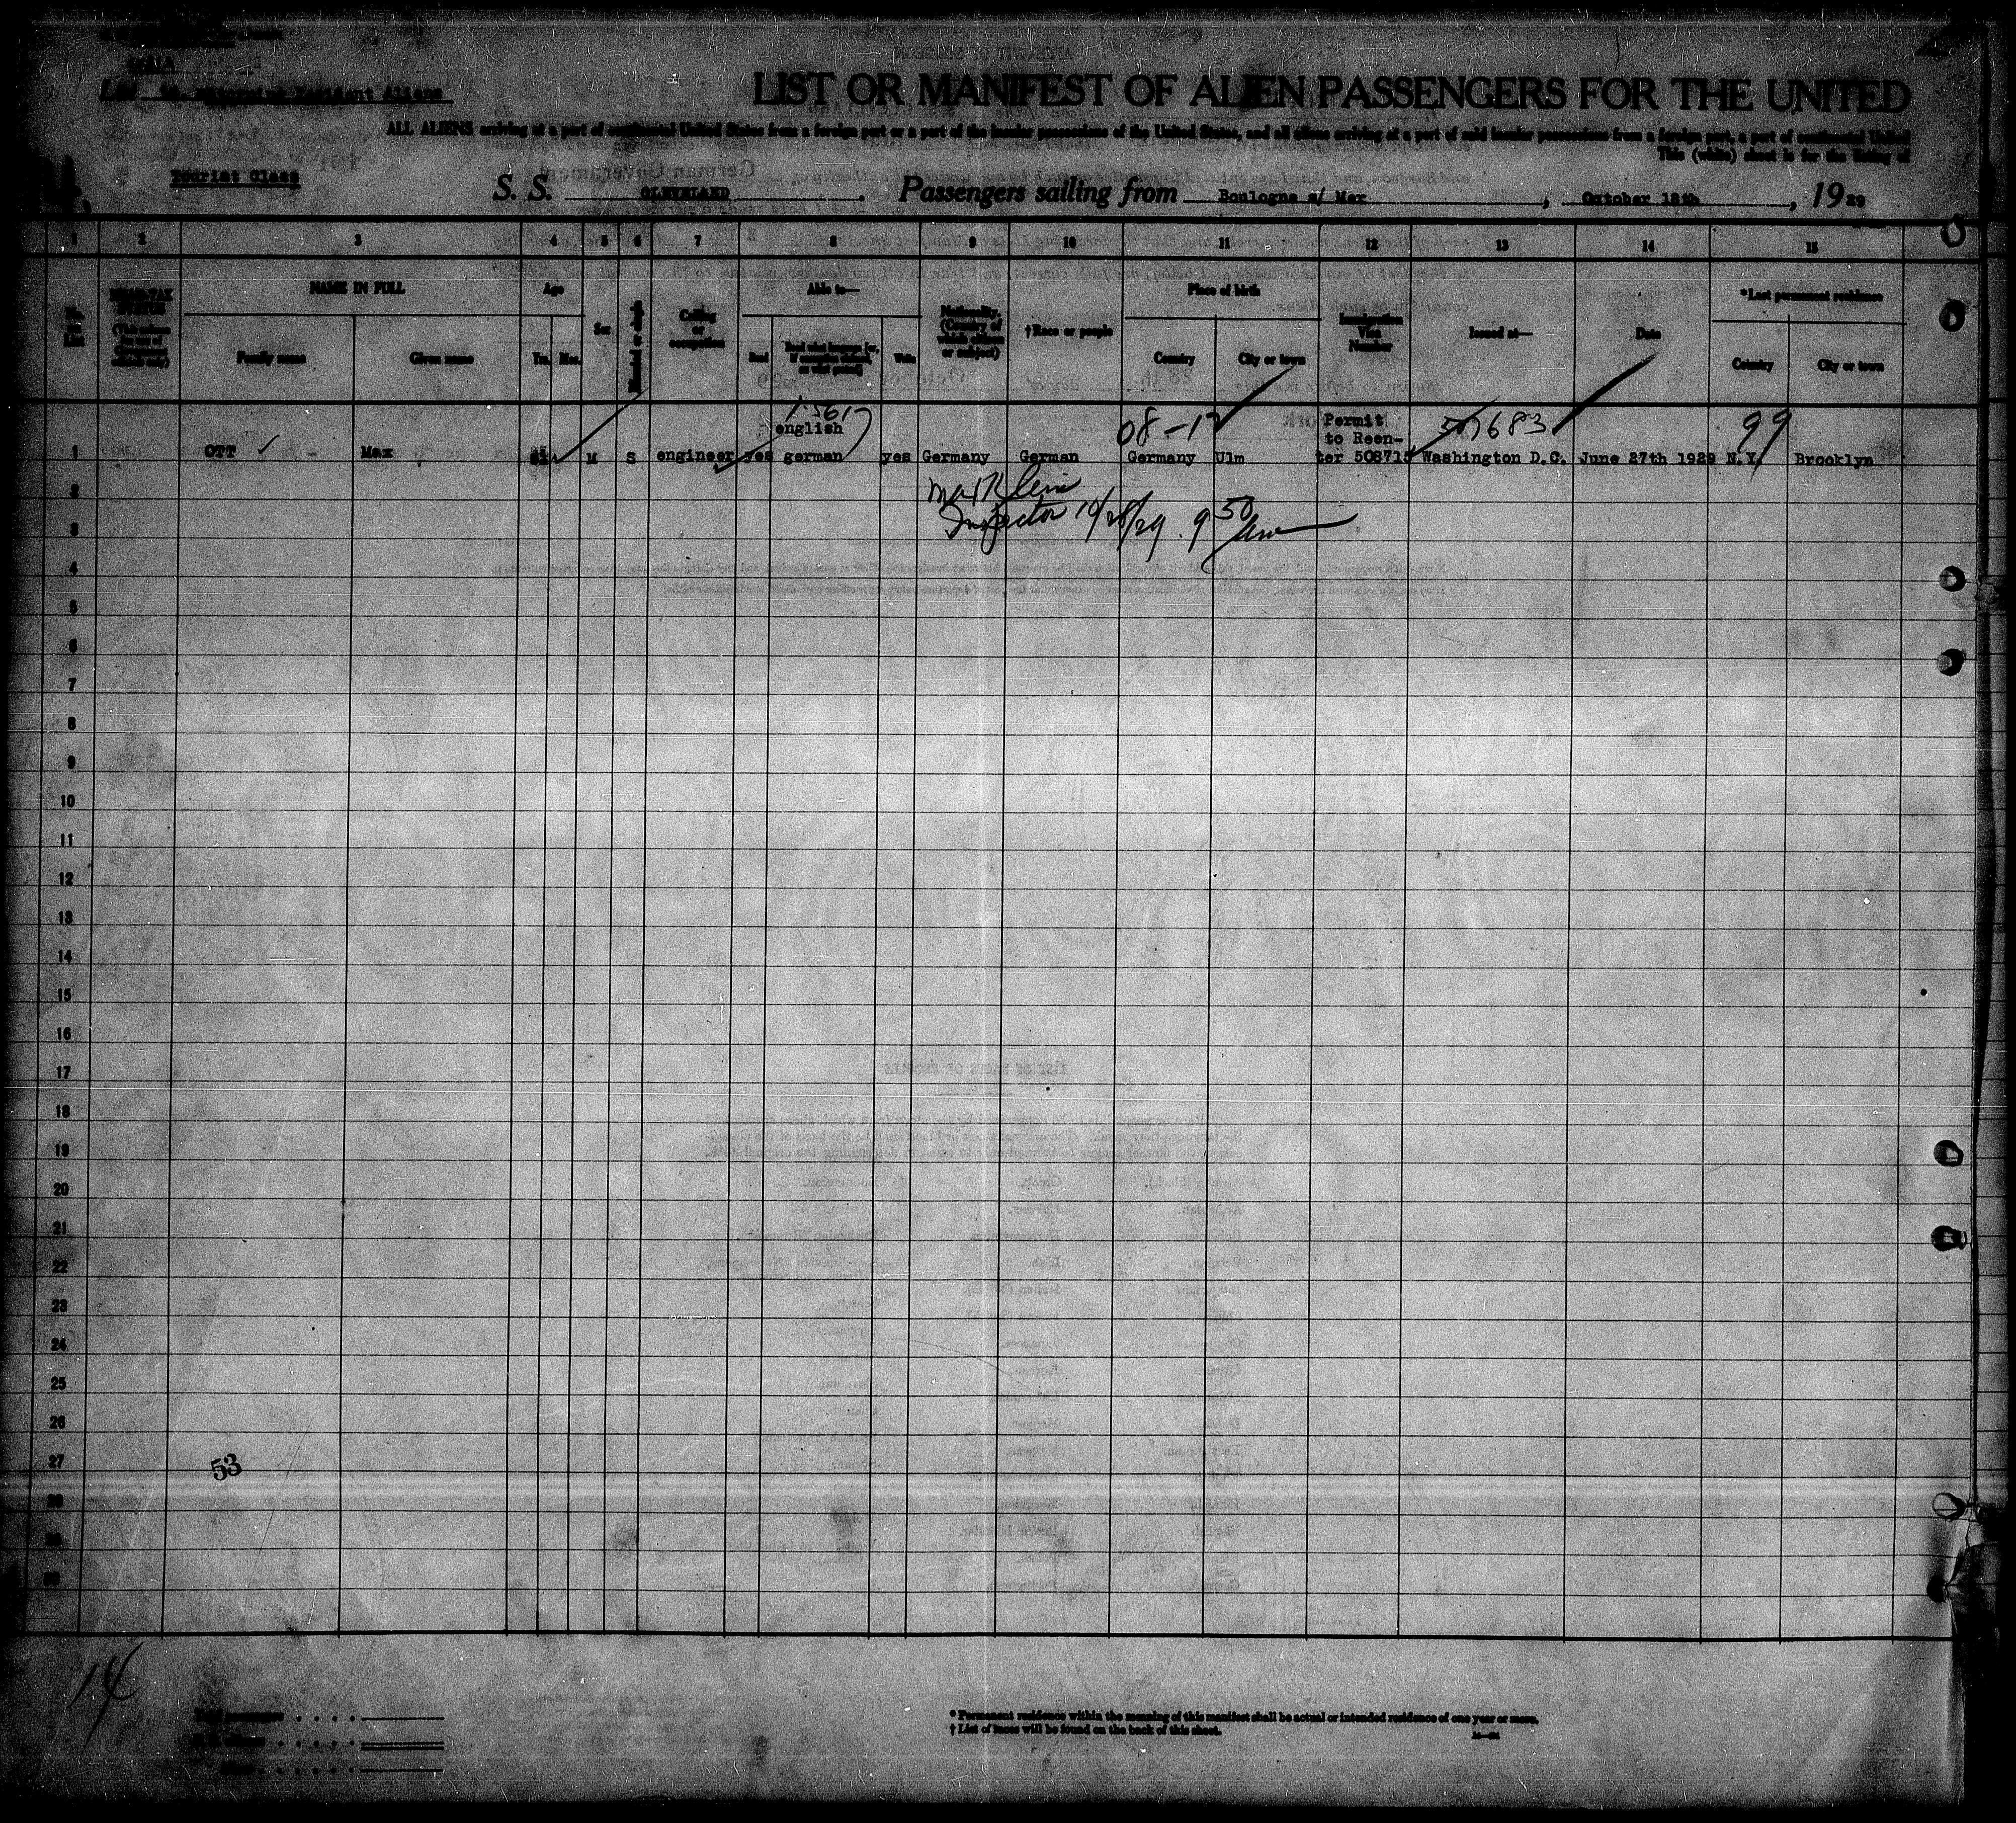 List Returning Resident Aliens
LIST OR MANIFEST OF ALIEN PASSENGERS FOR THE UNITED
ALL ALIENS arriving at a port of continental United States from a foreign port or a port of the insular possessions of the United States, and all aliens arriving at a port of said insular possessions from a foreign port, a port of continental United
This (white) sheet is for the listing of
Tourist Class
S. S. CLEVELAND. Passengers sailing from Boulogne s/ Mer, October 18th, 1929
1 2 3 4 5 6 7 8 9 10 11 12 13 14 15
No. on List
HEAD-TAX STATUS
NAME IN FULL
Family name
Given name
Age
Yrs. Mos.
Sex
Married or single
Calling or occupation
Able to—
Read
Read what language [or, if exemption claimed, on what ground]
Write
Nationality. (Country of which citizen or subject)
†Race or people
Place of birth
Country
City or town
Immigration Visa Number
Issued at—
Date
*Last permanent residence
Country
City or town
08-17
99
english
Permit
to Reen-
1 OTT Max M S engineer yes german yes Germany German Germany Ulm ter 508715 Washington D.C. June 27th 1929 N.Y. Brooklyn
2
Inspector 10/28/29 . 9 50 am
3
4
5
6
7
8
9
10
11
12
13
14
15
16
17
18
19
20
21
22
23
24
25
26
27
53
28
29
30
14
* Permanent residence within the meaning of this manifest shall be actual or intended residence of one year or more.
† List of races will be found on the back of this sheet.